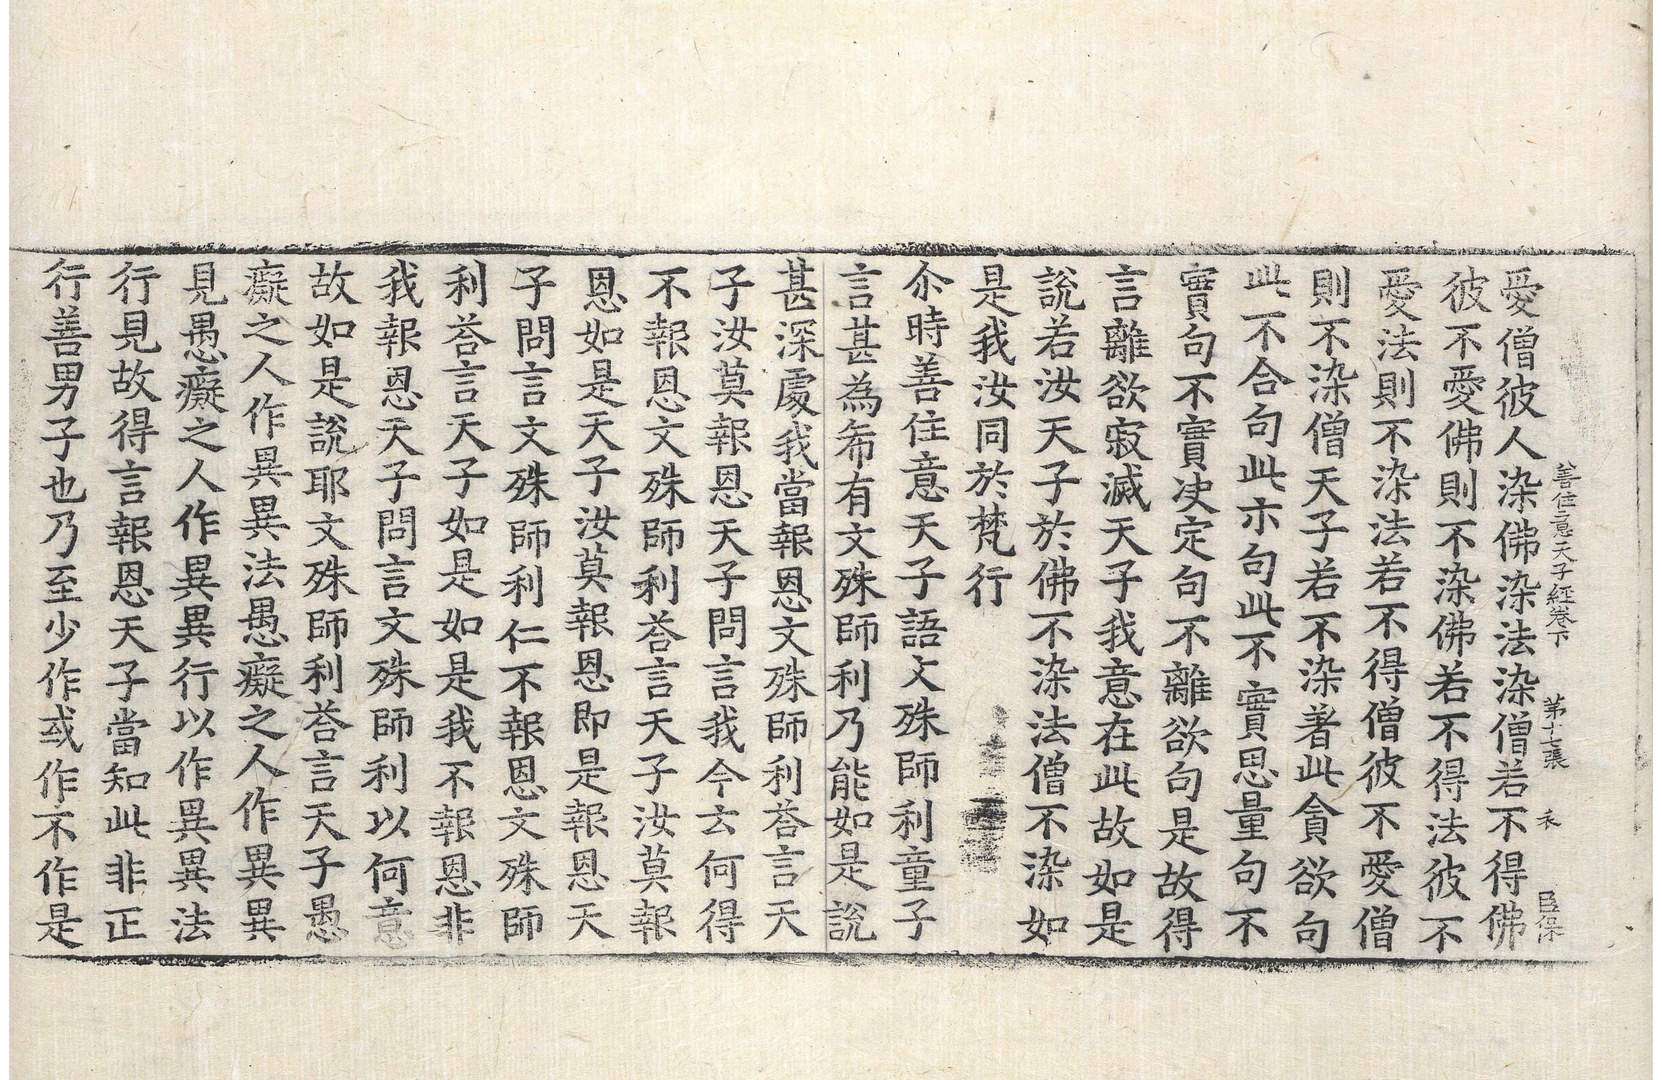 善住意天子經卷下 第十七張 衣 臣保
愛僧彼人染佛染法染僧若不得佛
彼不愛佛則不染佛若不得法彼不
愛法則不染法若不得僧彼不愛僧
則不染僧天子若不染著此貪欲句
此不合句此示句此不實思量句不
實句不實决定句不離欲句是故得
言離欲寂滅天子我意在此故如是
說若汝天子於佛不染法僧不染如
是我汝同於梵行
尒時善住意天子語文殊師利童子
言甚為希有文殊師利乃能如是說
甚深處我當報恩文殊師利荅言天
子汝莫報恩天子問言我今云何得
不報恩文殊師利荅言天子汝莫報
恩如是天子汝莫報恩即是報恩天
子問言文殊師利仁不報恩文殊師
利荅言天子如是如是我不報恩非
我報恩天子問言文殊師利以何意
故如是說耶文殊師利荅言天子愚
癡之人作異異法愚癡之人作異異
見愚癡之人作異異行以作異異法
行見故得言報恩天子當知此非正
行善男子也乃至少作或作不作是